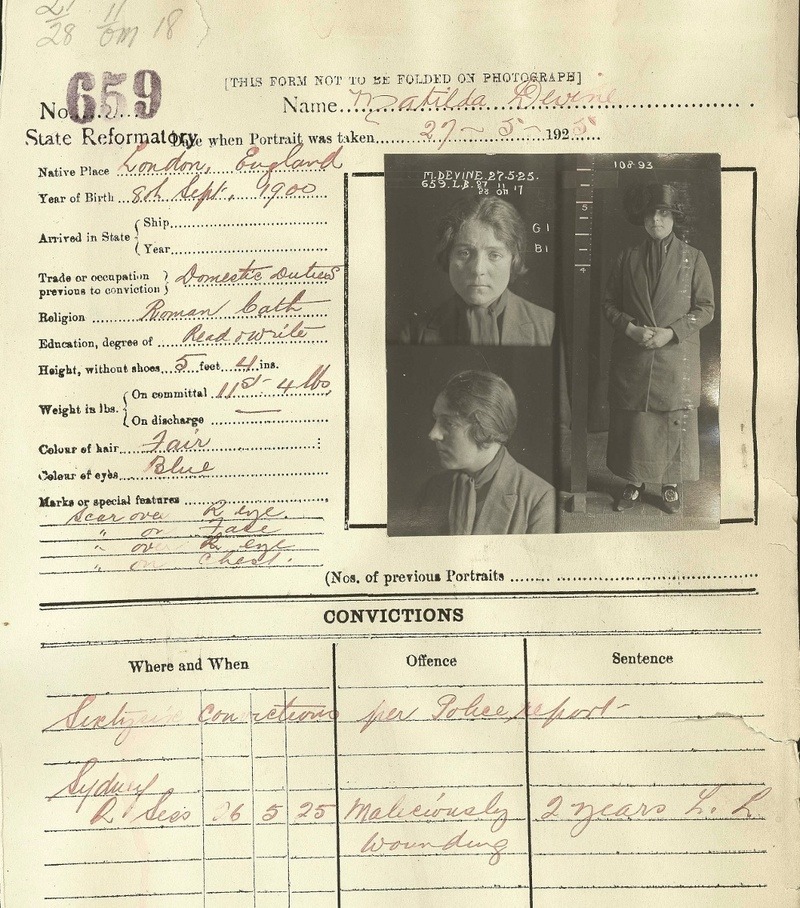 28 on 18
[THIS FORM NOT TO BE FOLDED ON PHOTOGRAPH]
No. 659
Name Matilda Devine
State Reformatory
Date when Portrait was taken 27-5-1925
Native Place London, England
Year of Birth 8th Sept., 1900
Arrived in State { Ship
Year
Trade or occupation previous to conviction } Domestic Duties
Religion Roman Cath
Education, degree of Read & write
Height, without shoes 5 feet 4 ins.
Weight in lbs. { On committal 11st 4 lbs
On discharge —
Colour of hair Fair
Colour of eyes Blue
Marks or special features
Scar over R eye.
" on Face
" over R eye
" on chest.
M.DEVINE.27-5-25.
659.L.B. 27 11 17
28 on
G1
B1
108-93
5
4
(Nos. of previous Portraits
CONVICTIONS
Where and When Offence Sentence
Sixty six convictions per Police report-
Sydney
Q Sess 26 5 25 Maliciously 2 years L. L.
wounding